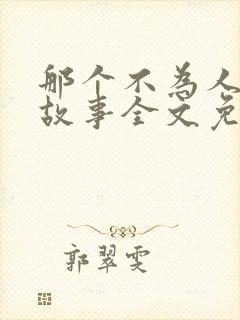 那个不为人
故事全文免
郭翠雯